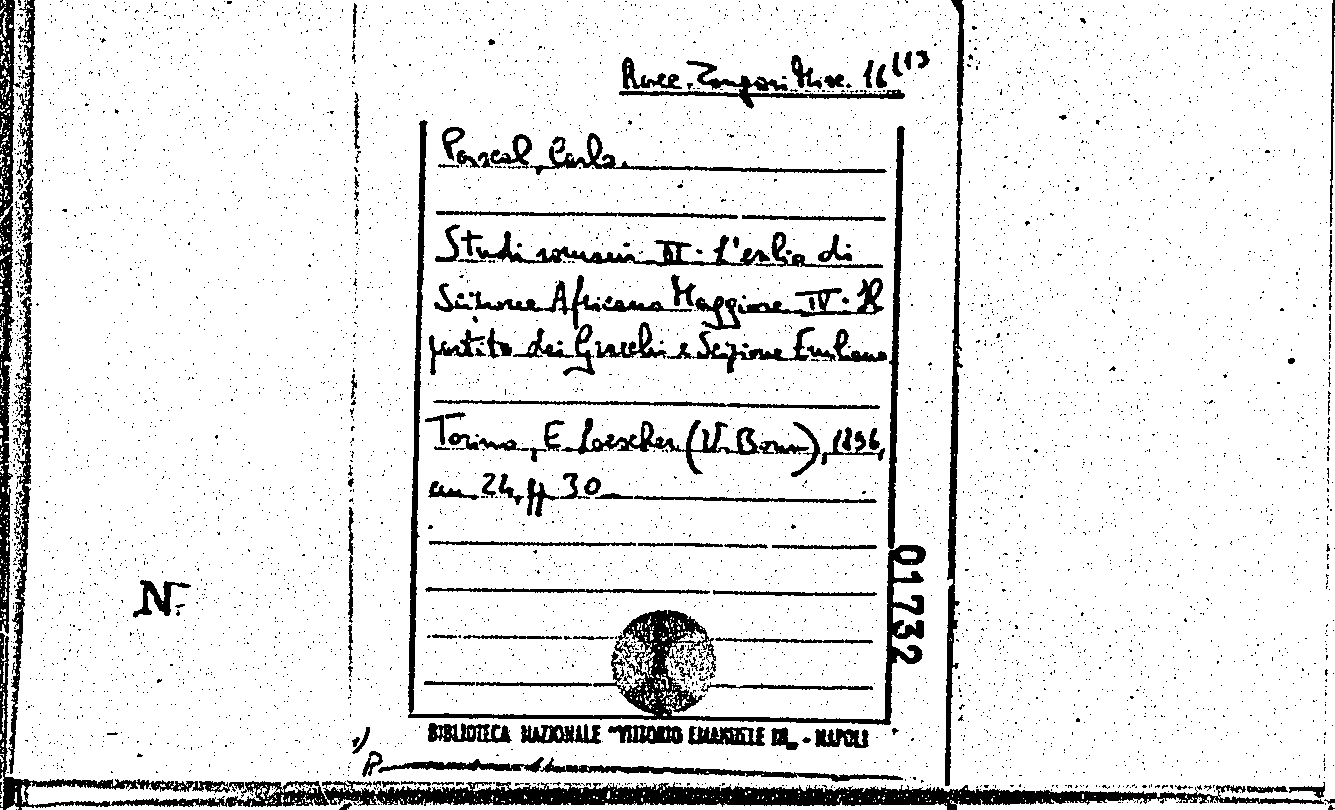 Racc. Zangari Misc. 16 (13
Pascal, Carlo.
Studi romani III. L'esilio di
Scipione Africano Maggiore IV. Il
partito dei Gracchi e Scipione Emiliano
Torino, E. Loescher (V. Bona), 1896,
cm 24, pp 30
01732
N.
BIBLIOTECA NAZIONALE "VITTORIO EMANUELE III„ - NAPOLI